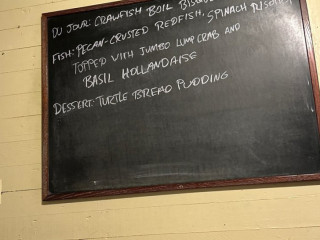 DU JOUR: CRAWFISH BOIL BISQUE
FISH: PECAN-CRUSTED REDFISH, SPINACH
TOPPED WITH JUMBO LUMP CRAB AND
BASIL HOLLANDAISE
DESSERT: TURTLE BREAD PUDDING